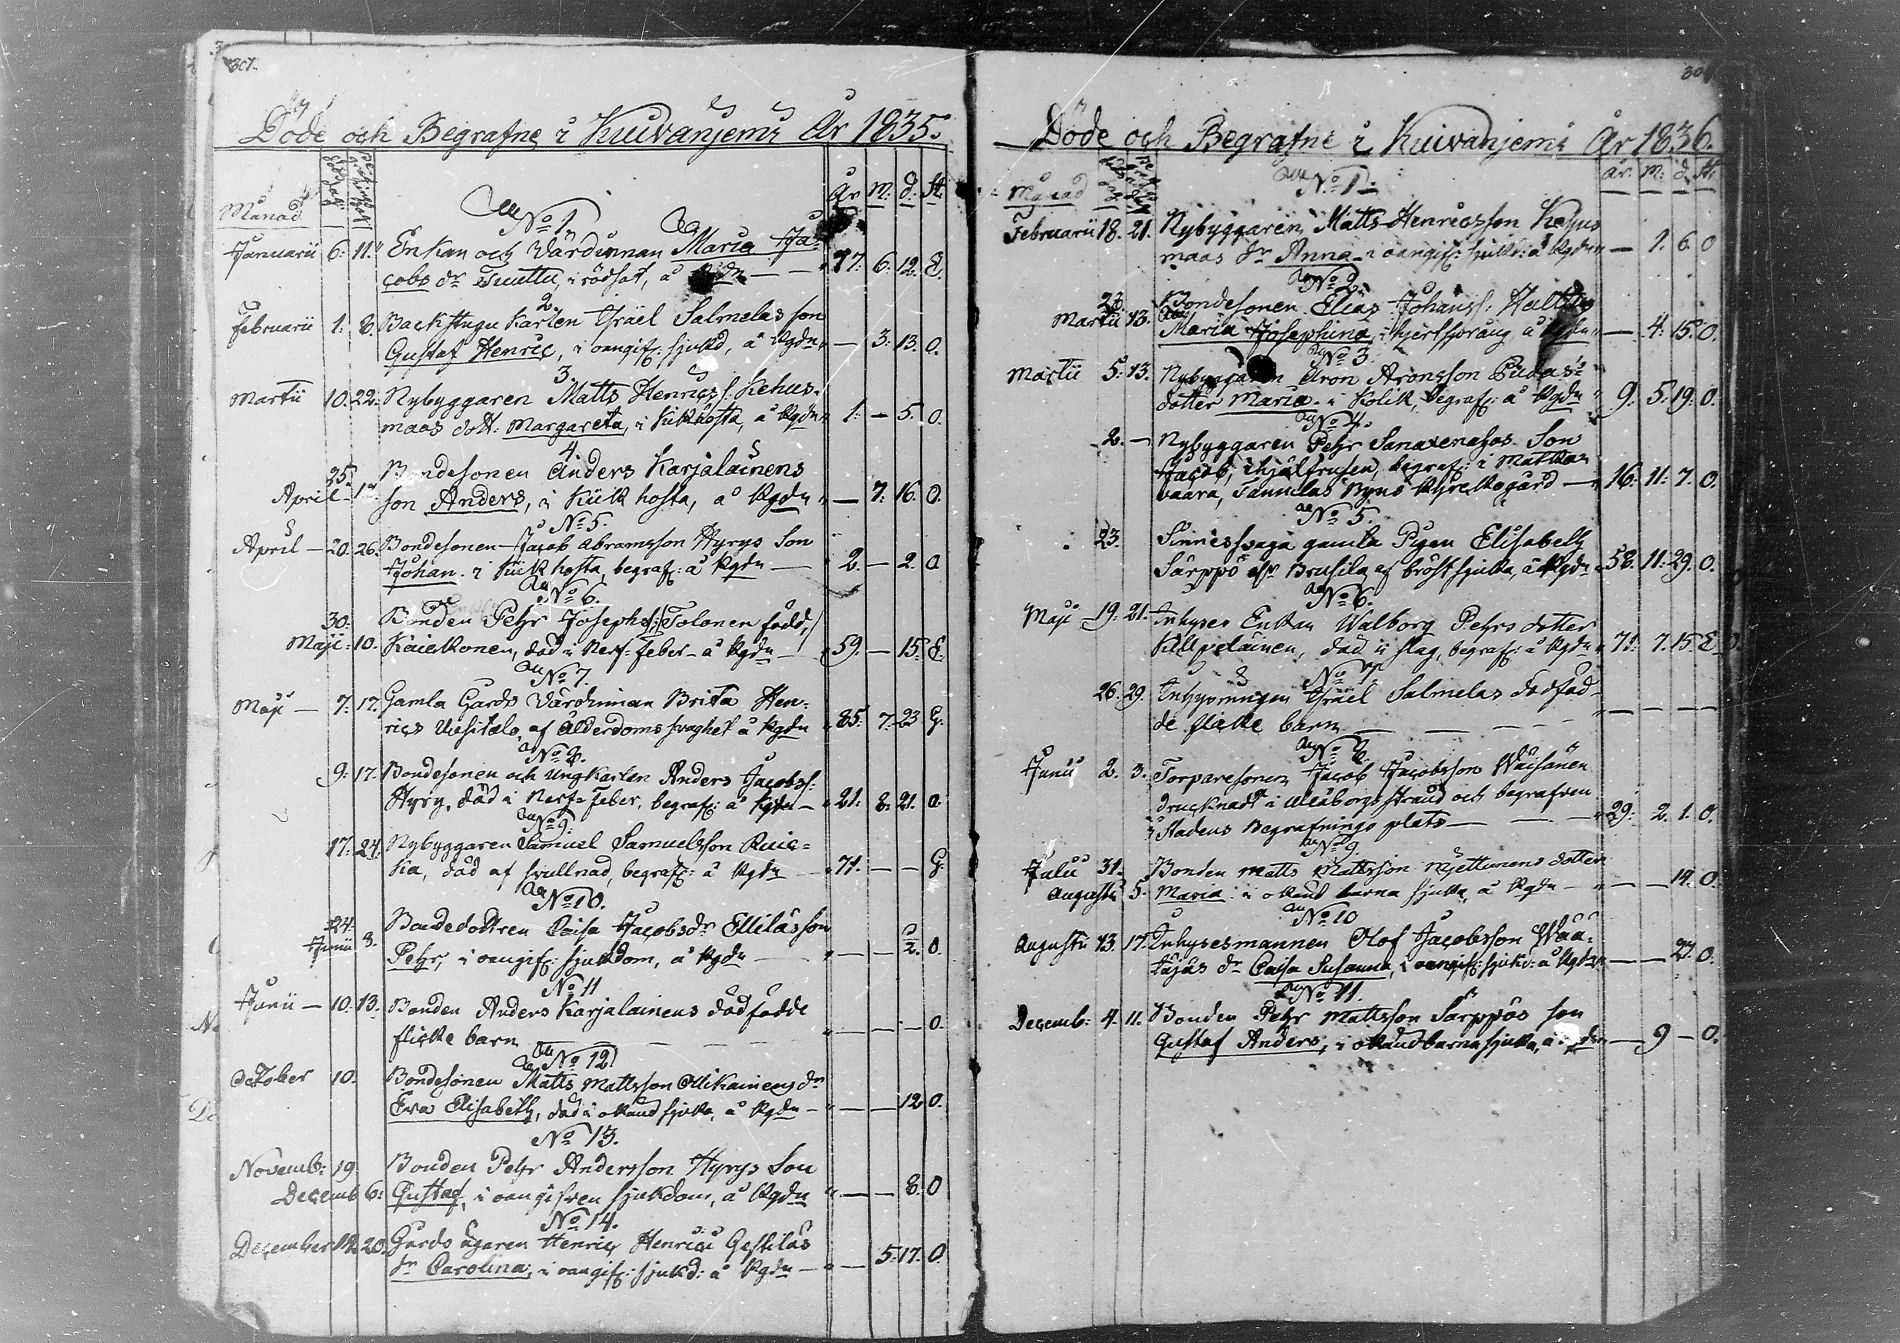 307.
Döde och Begrafne i Kuivanjemi År 1835.
Månad
År M: d: St:
No 1.
Januarii 6: 11. Enkan och Värdinnan Maria Ja-
cobs dr Tuuttu, i rödsot, å 77: 6: 12. E.
2.
Februarii 1: 8. Backstugu Karlen Isräel Salmelas son
Gustaf Henric, i oangif: sjukd, å Kgdn — 3: 13. O.
3
Martii 10: 22: Nybyggaren Matts Henricss: Kehus-
maas dott: Margareta, i Kikhosta, å Kgdn 1: — 5. O.
4
25. Bondesonen Anders Karjalainens
April 17. son Anders, i Kiikhosta, å Kgdn — 7: 16. O.
No 5.
April — 20. 26. Bondesonen Jacob Abramsson Hyrys Son
Johan. i Kiikhosta, begraf: å Kgdn — 2 — 2. O
No 6.
30. Bonden Pehr Josephs: Tolonen född,
Maji 10. Kaiekonen, död i Nerf: feber å Kgdn — 59. — 15. E.
No 7.
Maji — 7: 17. Gamla Gårds Värdinnan Brita Hen-
rics Uusitalo, af Ålderdoms svaghet å Kgdn 85. 7: 23 G.
No 8.
9: 17. Bondesonen och Ungkarlen Anders Jacobss:
Hyry, död i Nerf-Feber, begraf: å Kgdn — 21. 8: 21. O.
No 9.
17: 24. Nybyggaren Samuel Samuelsson Ruic-
ka, död af svullnad, begraf: å Kgdn — 71. — — G.
No 10.
24. Bondedottren Caisa Jacobsdr Ellilas son
Junii 3. Pehr, i oangif: sjukdom, å Kgdn — — O
No 11
Junii — 10. 13. Bonden Anders Karjalainens dödfödde
flicke barn — — — O.
No 12.
October 10. Bondesonen Matts Mattsson Ollikainens dr
Eva Elisabeth, död i okänd sjukd, å Kgdn — — — 12 O.
No 13.
Novemb: 19. Bonden Pehr Andersson Hyrys Son
Decemb 6: Gustaf, i oangifven sjukdom, å Kgdn — — 8: O
No 14.
December 12. 20. Gårds Ägaren Henric Henrici Gestiläs
dr Carolina, i oangif: sjukd: å Kgdn — — 5: 17. O.
Döde och Begrafne i Kuivanjemi År 1836.
Månad
År. M: d. St:
No 1.
Februarii 18. 21. Nybyggaren Matts Henricsson Kehus
maas dr Anna i oangif: sjukd: å Kgdn — 1. 6. O
No 2.
Bondesonen Elias Johanss:
Martii 13. Maria Josephina, i hjertsprång, å Kgdn — 4. 15. O.
No 3.
Martii 5: 13. Nybyggaren Aron Aronsson Pudas's
dotter Maria. i Kolik, begraf: å Kgdn 9: 5: 19: O.
No 4.
2. — Nybyggaren Pehr Sanaxenahos Son
Jacob, ihjälfrusen, begraf: i
vaara, By Kyrkogård — 16: 11: 7. O.
No 5.
23. Sinnessvaga gamla Pigan Elisabeth
Särppö af bröst sjuka, å Kgdn 58: 11: 29. O.
No 6.
Maji 19: 21. Inhyses Enkan Walborg Pehrs dotter
Kilpeläinen, död i slag, begraf: å Kgdn 71. 7. 15. E
No 7
26. 29. Inhysingen Isräel Salmelas dödföd-
de flicke barn — — —
No 8
Junii 2. 3. Torparesonen Jacob Jacobsson Wäisänen
drucknad i Uleåborgs strand och begrafven
i Stadens Begrafnings plats — — 29: 2. 1. O.
No 9
Julii 31. Bonden Matts Mattsson Mjettunens dotter
Augusti 5. Maria i okänd barna sjuka, å Kgdn — — 14. O.
No 10
Augusti 13. 17. Inhysesmannen Olof Jacobsson Wää-
täjäs dr Caisa Susanna, i oangif: sjukd: å Kgdn — 27. O.
No 11.
Decemb: 4. 11. Bonden Pehr Mattsson Särppös son
Gustaf Anders, i okänd barnasjuka, å — 9 — O.